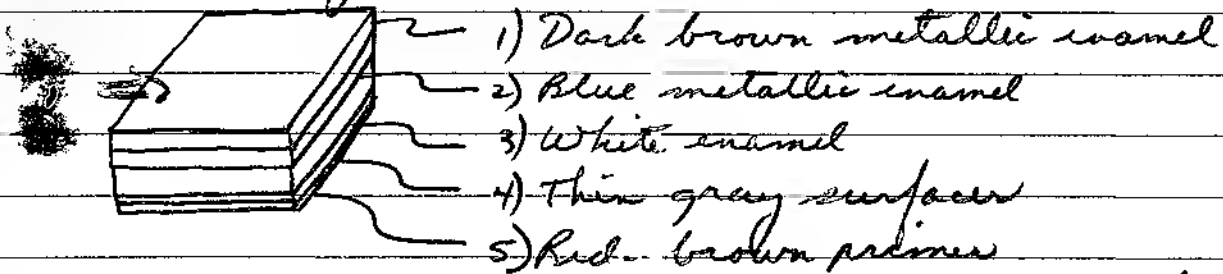 1) Dark brown metallic enamel
2) Blue metallic enamel
3) White enamel
4) Thin gray surfacer
5) Red-brown primer